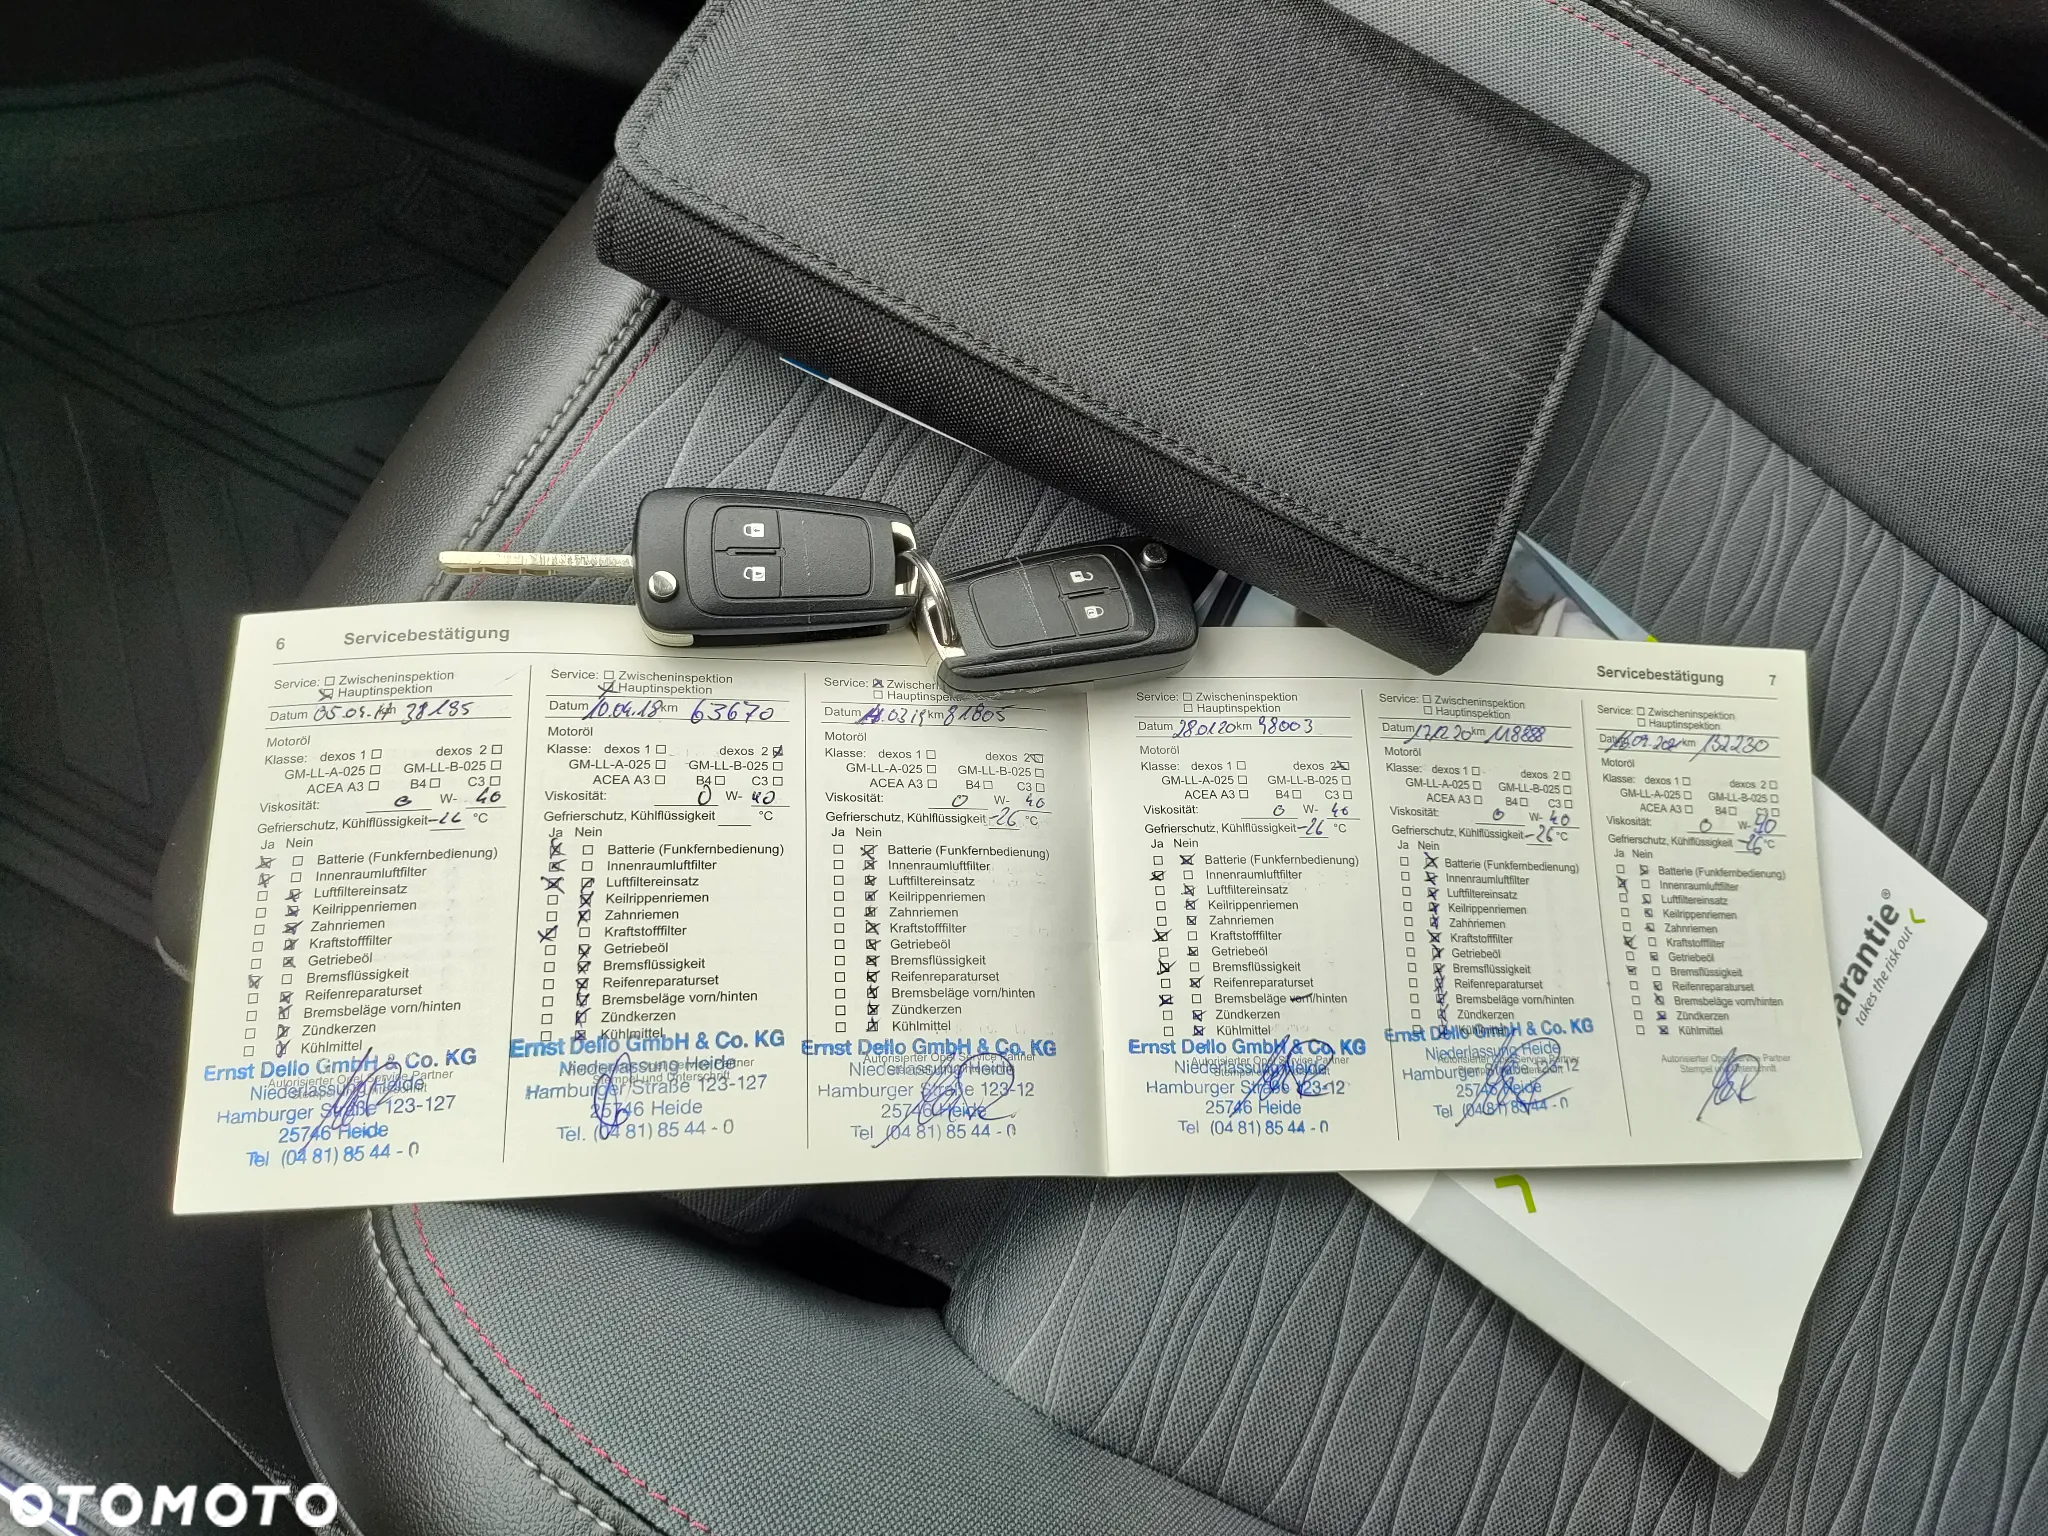 6 Servicebestätigung
Service: Zwischeninspektion
Hauptinspektion
Datum 05.05.17 km 38185
Motoröl
Klasse: dexos 1 dexos 2
GM-LL-A-025 GM-LL-B-025
ACEA A3 B4 C3
Viskosität: 0 W- 40
Gefrierschutz, Kühlflüssigkeit -26 °C
Ja Nein
Batterie (Funkfernbedienung)
Innenraumluftfilter
Luftfiltereinsatz
Keilrippenriemen
Zahnriemen
Kraftstofffilter
Getriebeöl
Bremsflüssigkeit
Reifenreparaturset
Bremsbeläge vorn/hinten
Zündkerzen
Kühlmittel
Autorisierter Opel Service Partner
Stempel und Unterschrift
Ernst Dello GmbH & Co. KG
Niederlassung Heide
Hamburger Straße 123-127
25746 Heide
Tel (04 81) 85 44 - 0
Service: Zwischeninspektion
Hauptinspektion
Datum 10.04.18 km 63670
Motoröl
Klasse: dexos 1 dexos 2
GM-LL-A-025 GM-LL-B-025
ACEA A3 B4 C3
Viskosität: 0 W- 40
Gefrierschutz, Kühlflüssigkeit °C
Ja Nein
Batterie (Funkfernbedienung)
Innenraumluftfilter
Luftfiltereinsatz
Keilrippenriemen
Zahnriemen
Kraftstofffilter
Getriebeöl
Bremsflüssigkeit
Reifenreparaturset
Bremsbeläge vorn/hinten
Zündkerzen
Kühlmittel
Autorisierter Opel Service Partner
Stempel und Unterschrift
Ernst Dello GmbH & Co. KG
Niederlassung Heide
Hamburger Straße 123-127
25746 Heide
Tel. (04 81) 85 44 - 0
Service: Zwischen
Hauptinspektion
Datum 03 19 km 81805
Motoröl
Klasse: dexos 1 dexos 2
GM-LL-A-025 GM-LL-B-025
ACEA A3 B4 C3
Viskosität: 0 W- 40
Gefrierschutz, Kühlflüssigkeit -26 °C
Ja Nein
Batterie (Funkfernbedienung)
Innenraumluftfilter
Luftfiltereinsatz
Keilrippenriemen
Zahnriemen
Kraftstofffilter
Getriebeöl
Bremsflüssigkeit
Reifenreparaturset
Bremsbeläge vorn/hinten
Zündkerzen
Kühlmittel
Autorisierter Opel Service Partner
Stempel und Unterschrift
Ernst Dello GmbH & Co. KG
Niederlassung Heide
Hamburger Straße 123-12
25746 Heide
Tel (04 81) 85 44 - 0
Servicebestätigung 7
Service: Zwischeninspektion
Hauptinspektion
Datum 280120 km 98003
Motoröl
Klasse: dexos 1 dexos 2
GM-LL-A-025 GM-LL-B-025
ACEA A3 B4 C3
Viskosität: 0 W- 40
Gefrierschutz, Kühlflüssigkeit -26 °C
Ja Nein
Batterie (Funkfernbedienung)
Innenraumluftfilter
Luftfiltereinsatz
Keilrippenriemen
Zahnriemen
Kraftstofffilter
Getriebeöl
Bremsflüssigkeit
Reifenreparaturset
Bremsbeläge vorn/hinten
Zündkerzen
Kühlmittel
Autorisierter Opel Service Partner
Stempel und Unterschrift
Ernst Dello GmbH & Co. KG
Niederlassung Heide
Hamburger Straße 123-12
25746 Heide
Tel (04 81) 85 44 - 0
Service: Zwischeninspektion
Hauptinspektion
Datum 171220 km 118888
Motoröl
Klasse: dexos 1 dexos 2
GM-LL-A-025 GM-LL-B-025
ACEA A3 B4 C3
Viskosität: 0 W- 40
Gefrierschutz, Kühlflüssigkeit -26 °C
Ja Nein
Batterie (Funkfernbedienung)
Innenraumluftfilter
Luftfiltereinsatz
Keilrippenriemen
Zahnriemen
Kraftstofffilter
Getriebeöl
Bremsflüssigkeit
Reifenreparaturset
Bremsbeläge vorn/hinten
Zündkerzen
Kühlmittel
Autorisierter Opel Service Partner
Stempel und Unterschrift
Ernst Dello GmbH & Co. KG
Niederlassung Heide
Hamburger Straße 123-12
25746 Heide
Tel (04 81) 85 44 - 0
Service: Zwischeninspektion
Hauptinspektion
Datum km 132230
Motoröl
Klasse: dexos 1 dexos 2
GM-LL-A-025 GM-LL-B-025
ACEA A3 B4 C3
Viskosität: 0 W- 40
Gefrierschutz, Kühlflüssigkeit -26 °C
Ja Nein
Batterie (Funkfernbedienung)
Innenraumluftfilter
Luftfiltereinsatz
Keilrippenriemen
Zahnriemen
Kraftstofffilter
Getriebeöl
Bremsflüssigkeit
Reifenreparaturset
Bremsbeläge vorn/hinten
Zündkerzen
Kühlmittel
Autorisierter Opel Service Partner
Stempel und Unterschrift
arantie®
takes the risk out
OTOMOTO